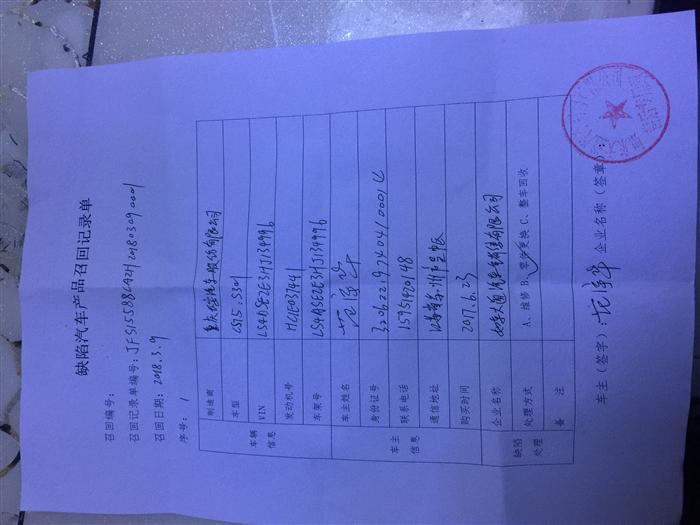 缺陷汽车产品召回记录单
召回编号：
召回记录单编号：JFS15588CA2H201803090001
召回日期：2018.3.9
序号：1
车辆信息
制造商 重庆长安汽车股份有限公司
车型 CS15.S301
VIN LS4ASE2E3HJ134996
发动机号
车架号 LS4ASE2E3HJ134996
车主信息
车主姓名
身份证号
联系电话 15951470148
通信地址
购买时间 2017.6.23
缺陷处理
企业名称 汽车销售有限公司
处理方式 A、维修 B、零件更换 C、整车回收
备 注
车主（签字）： 企业名称（签章）：